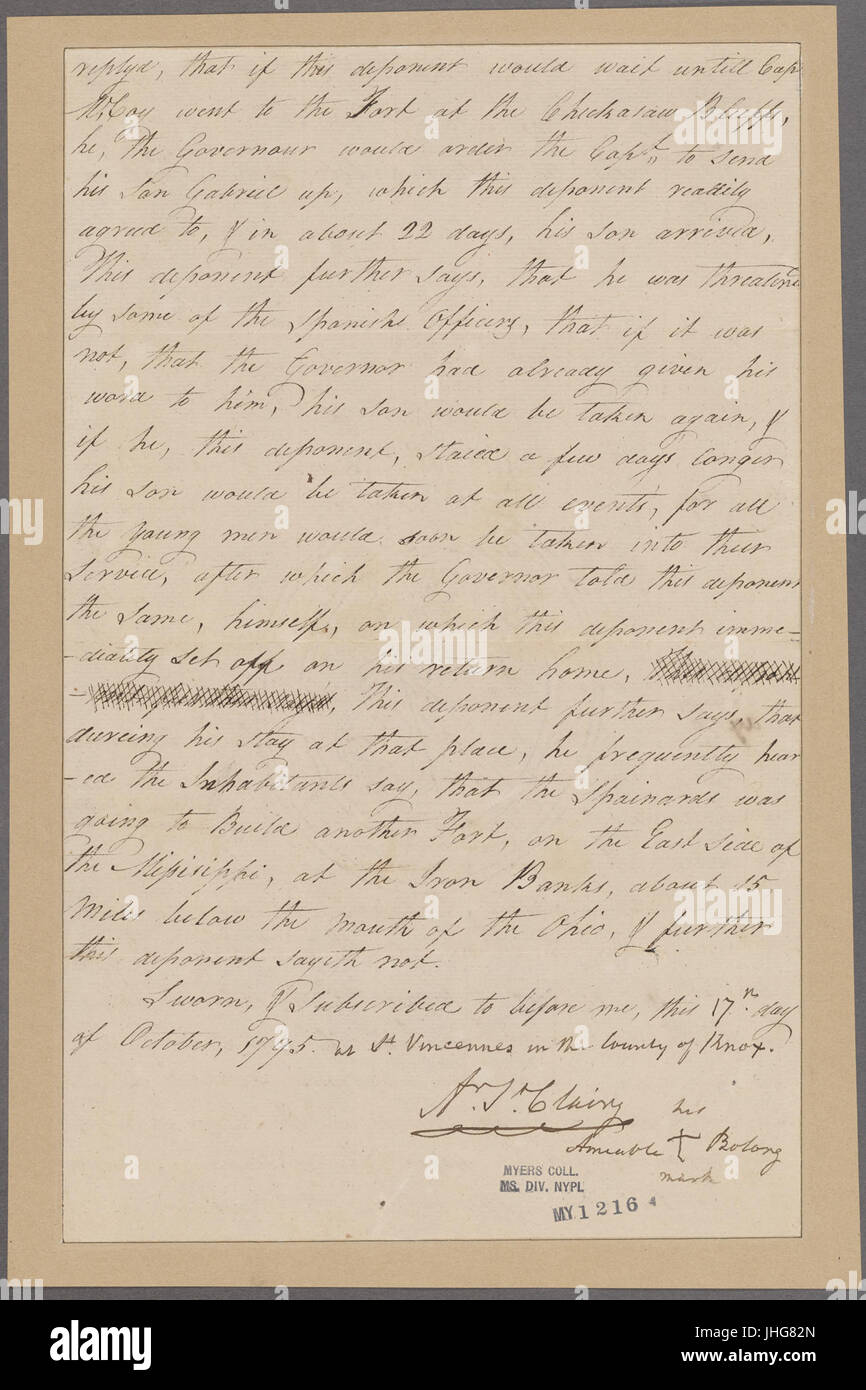 replyd, that if this deponent would wait untill Cap
McCoy went to the Fort at the Chickasaw Bluffs,
he, the Governour would order the Capt. to send
his Son Gabriel up, which this deponent readily
agreed to, & in about 22 days, his son arrived,
This deponent further says, that he was threatend
by some of the Spanish Officers, that if it was
not, that the Governor had already given his
word to him, his son would be taken again, &
if he, this deponent, staied a few days longer
his son would be taken at all events, for all
the young men would soon be taken into their
Service, after which the Governor told this deponent
the same, himself, on which this deponent imme-
-diatly set off on his return home,
This deponent further says, that
dureing his stay at that place, he frequently hear
-ed the Inhabitants say, that the Spainards was
going to Build another Fort, on the East side of
the Misisippi, at the Iron Banks, about 15
Miles below the mouth of the Ohio, & further
this deponent sayeth not.
Sworn, & Subscribed to before me, this 17th day
of October, 1795. at St. Vincennes in the County of Knox.
Ar. St. Clair
his
Ameable + Bolong
mark
MYERS COLL.
MS. DIV. NYPL
MY 1216
alamy
alamy
Image ID: JHG82N
www.alamy.com